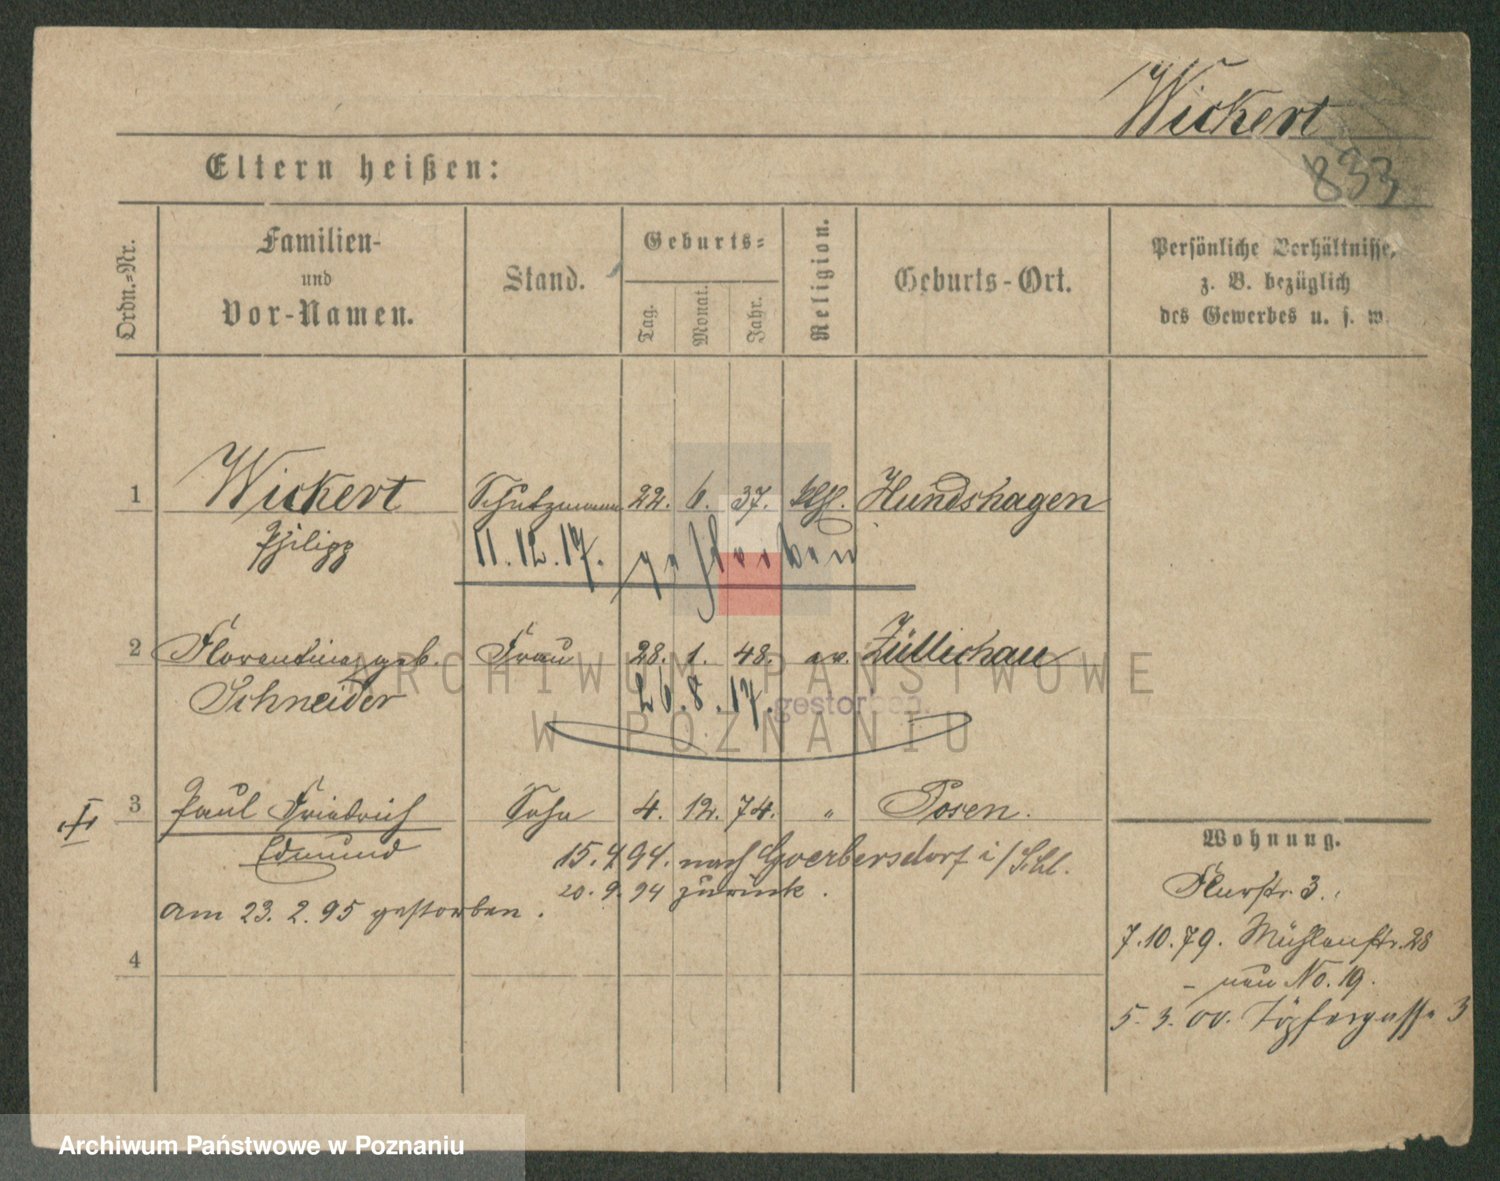 Wickert
833
Eltern heißen:
Ordn.-Nr.
Familien-
und
Vor-Namen.
Stand.
Geburts-
Tag.
Monat.
Jahr.
Religion.
Geburts-Ort.
Persönliche Verhältnisse,
z. B. bezüglich
des Gewerbes u. s. w.
1 Wickert Schutzmann 22. 6. 37. kth. Hundshagen
Philipp
11.12.17. gestorben
2 Florentine geb. Frau 28. 1. 48. ev. Züllichau
Schneider
26.8.17. gestorben.
3 Paul Friedrich Sohn 4. 12. 74. " Posen.
Edmund
15.4.94. nach Goerbersdorf i/Schl.
20.9.94 zurück.
am 23.2.95 gestorben.
4
Wohnung.
Flurstr. 3.
7.10.79. Mühlenstr. 28
- neu No. 19.
5.3.00. Töpfergasse 3
ARCHIWUM PAŃSTWOWE
W POZNANIU
Archiwum Państwowe w Poznaniu